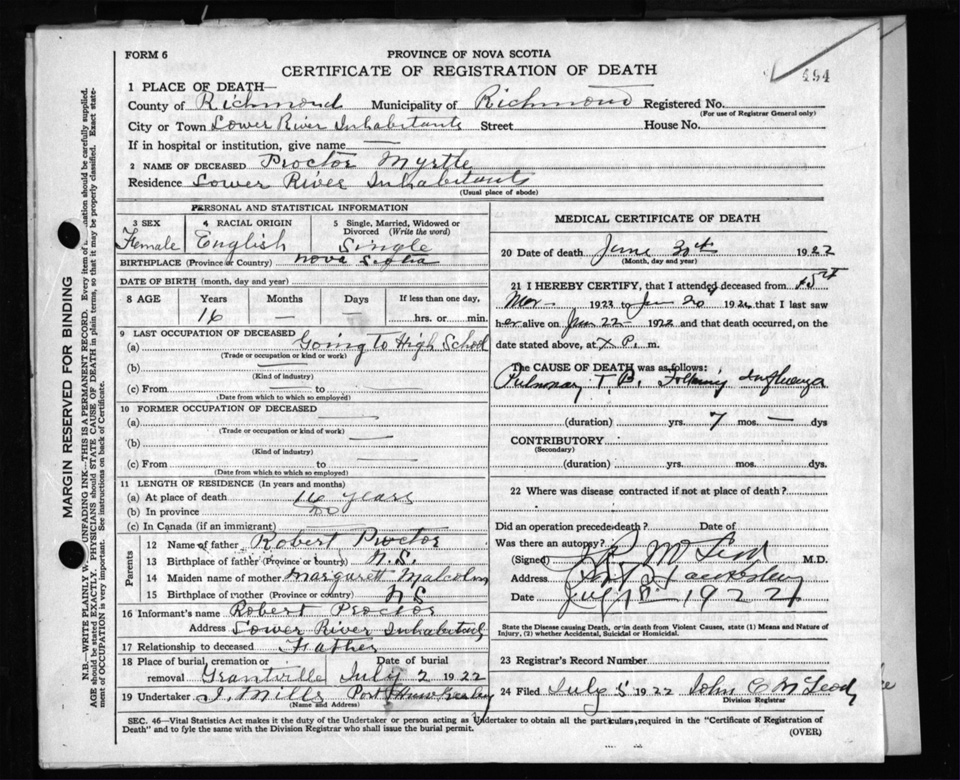 FORM 6
PROVINCE OF NOVA SCOTIA
CERTIFICATE OF REGISTRATION OF DEATH
494
1 PLACE OF DEATH—
County of Richmond Municipality of Richmond Registered No.
(For use of Registrar General only)
City or Town Lower River Inhabitants Street House No.
If in hospital or institution, give name —
2 NAME OF DECEASED Proctor Myrtle
Residence Lower River Inhabitants
(Usual place of abode)
PERSONAL AND STATISTICAL INFORMATION
3 SEX 4 RACIAL ORIGIN 5 Single, Married, Widowed or Divorced (Write the word)
Female English Single
BIRTHPLACE (Province or Country) Nova Scotia
DATE OF BIRTH (month, day and year)
8 AGE Years Months Days If less than one day,
16 — — hrs. or min.
9 LAST OCCUPATION OF DECEASED
(a) Going to High School
(Trade or occupation or kind or work)
(b) —
(Kind of industry)
(c) From — to —
(Date from which to which so employed)
10 FORMER OCCUPATION OF DECEASED
(a)
(Trade or occupation or kind of work)
(b)
(Kind of industry)
(c) From to
(Date from which to which so employed)
11 LENGTH OF RESIDENCE (In years and months)
(a) At place of death 16 years
(b) In province do
(c) In Canada (if an immigrant)
Parents
12 Name of father Robert Proctor
13 Birthplace of father (Province or country) N.S.
14 Maiden name of mother Margarett Malcolm
15 Birthplace of mother (Province or country) N S
16 Informant's name Robert Proctor
Address Lower River Inhabitants
17 Relationship to deceased Father
18 Place of burial, cremation or removal Grantville Date of burial July 2 1922
19 Undertaker J. Mills Port Hawkesbury
(Name and Address)
MEDICAL CERTIFICATE OF DEATH
20 Date of death June 30th 1922
(Month, day and year)
21 I HEREBY CERTIFY, that I attended deceased from 15th
Mar 1923 to 192 that I last saw
her alive on 22 192 and that death occurred, on the
date stated above, at P. m.
The CAUSE OF DEATH was as follows:
Pulmonary T. B. Following Influenza
(duration) yrs. 7 mos. — dys
CONTRIBUTORY
(Secondary)
(duration) yrs. mos. dys.
22 Where was disease contracted if not at place of death?
Did an operation precede death? Date of
Was there an autopsy?
(Signed) McLeod M.D.
Address Port Hawkesbury
Date July 1922
State the Disease causing Death, or in death from Violent Causes, state (1) Means and Nature of
Injury, (2) whether Accidental, Suicidal or Homicidal.
23 Registrar's Record Number
24 Filed July 5 1922 John C McLeod
Division Registrar
SEC. 46—Vital Statistics Act makes it the duty of the Undertaker or person acting as Undertaker to obtain all the particulars, required in the "Certificate of Registration of
Death" and to fyle the same with the Division Registrar who shall issue the burial permit.
(OVER)
MARGIN RESERVED FOR BINDING
N.B.—WRITE PLAINLY UNFADING INK—THIS IS A PERMANENT RECORD. Every item of should be carefully supplied.
AGE should be stated EXACTLY. PHYSICIANS should STATE CAUSE OF DEATH in plain terms, so that it may be properly classified. Exact state-
ment of OCCUPATION is very important. See instructions on back of Certificate.